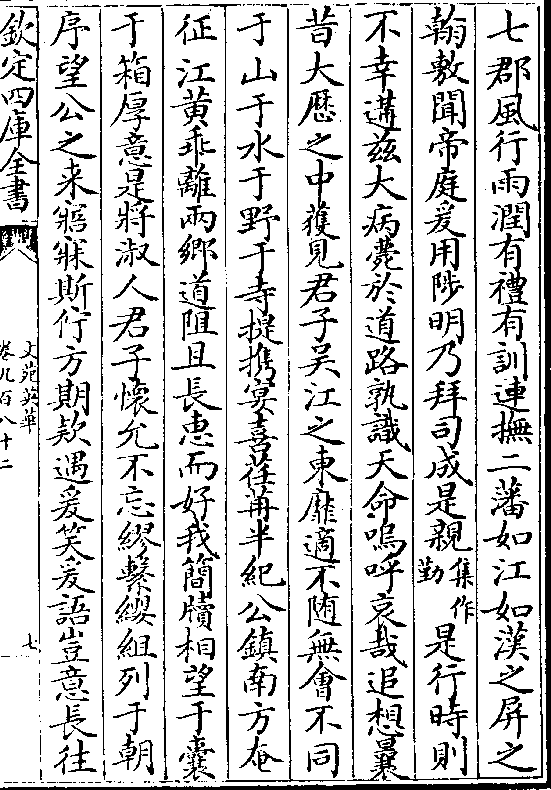 七郡風行雨潤有禮有訓連撫二藩如江如漢之屏之
翰敷聞帝庭爰用陟明乃拜司成是親集作勤是行時則
不幸遘兹大病薨於道路孰識天命嗚呼哀哉追想曩
昔大歴之中獲見君子吳江之東靡適不随無㑹不同
于山于水于野于寺提携宴喜荏苒半紀公鎮南方奄
征江黄乖離兩鄉道阻且長惠而好我簡牘相望于囊
于箱厚意是將淑人君子懐允不忘繆繫纓組列于朝
序望公之来寤寐斯佇方期欵遇爰笑爰語豈意長往
欽定四庫全書
文苑英華
卷九百八十二
七